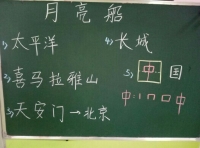 月亮船
1)太平洋
4)长城
2)喜马拉雅山
5)中国
中:丨冂口中
3)天安门→北京